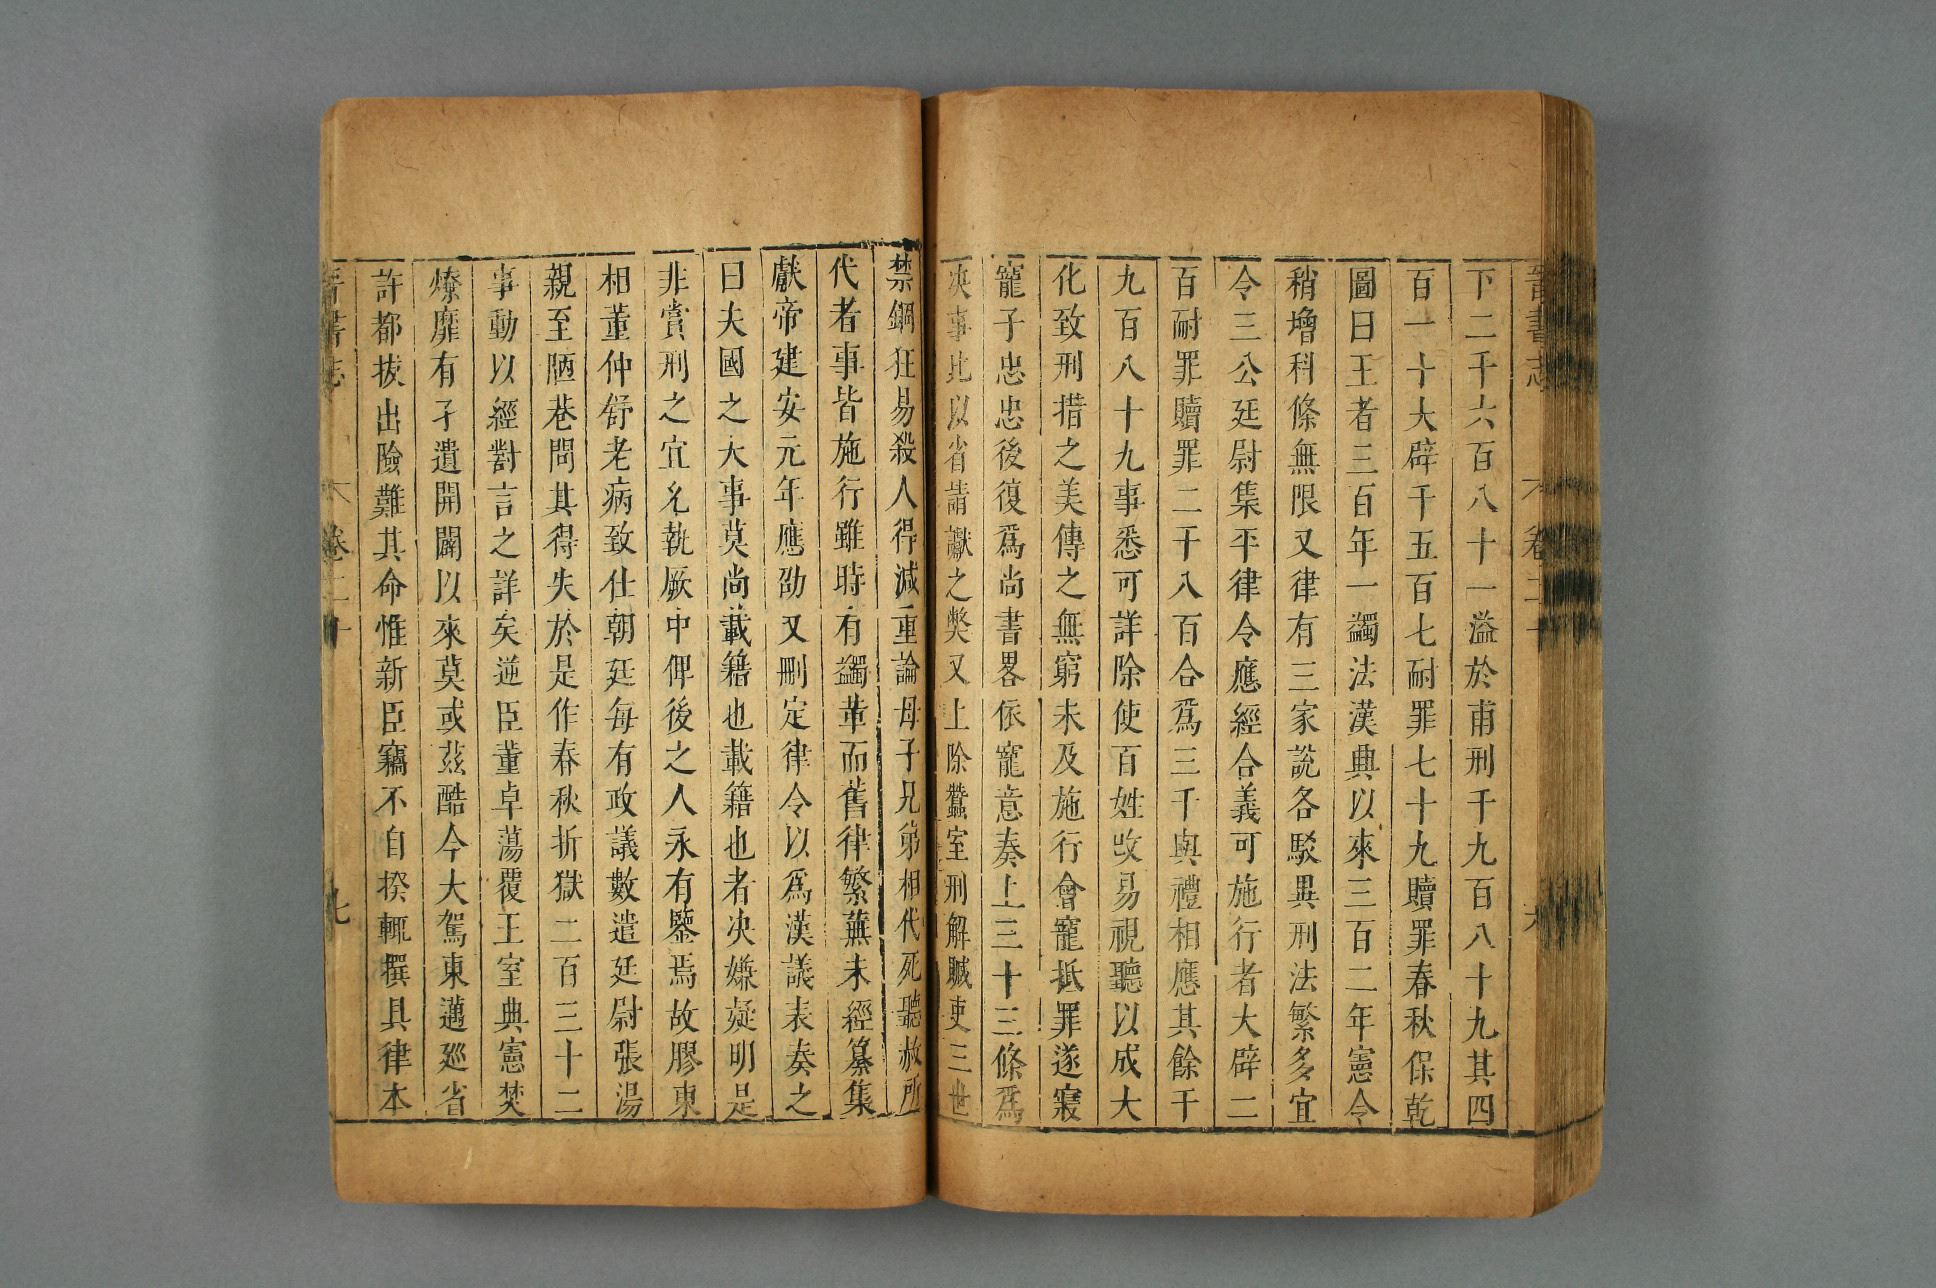 晉書志 卷三十 六
下二千六百八十一溢於甫刑千九百八十九其四
百一十大辟千五百七耐罪七十九贖罪春秋保乾
圖曰王者三百年一蠲法漢興以來三百二年憲令
稍增科條無限又律有三家說各駁異刑法繁多宜
令三公廷尉集平律令應經合義可施行者大辟二
百耐罪贖罪二千八百合爲三千與禮相應其餘千
九百八十九事悉可詳除使百姓改易視聽以成大
化致刑措之美傳之無窮未及施行會寵抵罪遂寢
寵子忠忠後復爲尚書畧依寵意奏上三十三條爲
決事比以省請讞之獘又上除蠶室刑解贓吏三世
禁錮狂易殺人得減重論母子兄弟相代死聽赦所
代者事皆施行雖時有蠲革而舊律繁蕪未經纂集
獻帝建安元年應劭又刪定律令以爲漢議表奏之
曰夫國之大事莫尚載籍也載籍也者决嫌疑明是
非賞刑之宜允執厥中俾後之人永有鑒焉故膠東
相董仲舒老病致仕朝廷每有政議數遣廷尉張湯
親至陋巷問其得失於是作春秋折獄二百三十二
事動以經對言之詳矣逆臣董卓蕩覆王室典憲焚
燎靡有孑遺開闢以來莫或茲酷今大駕東邁廵省
許都拔出險難其命惟新臣竊不自揆輒撰具律本
晉書志 卷三十 七